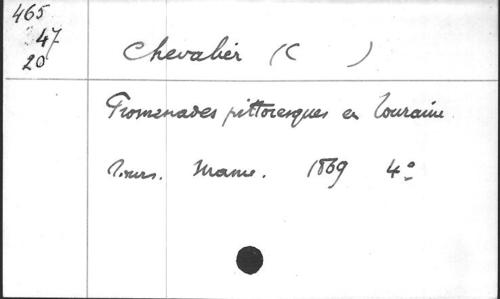 465
47
20
Chevalier (C )
Promenades pittoresques en Touraine
Tours. Mame. 1869 4°